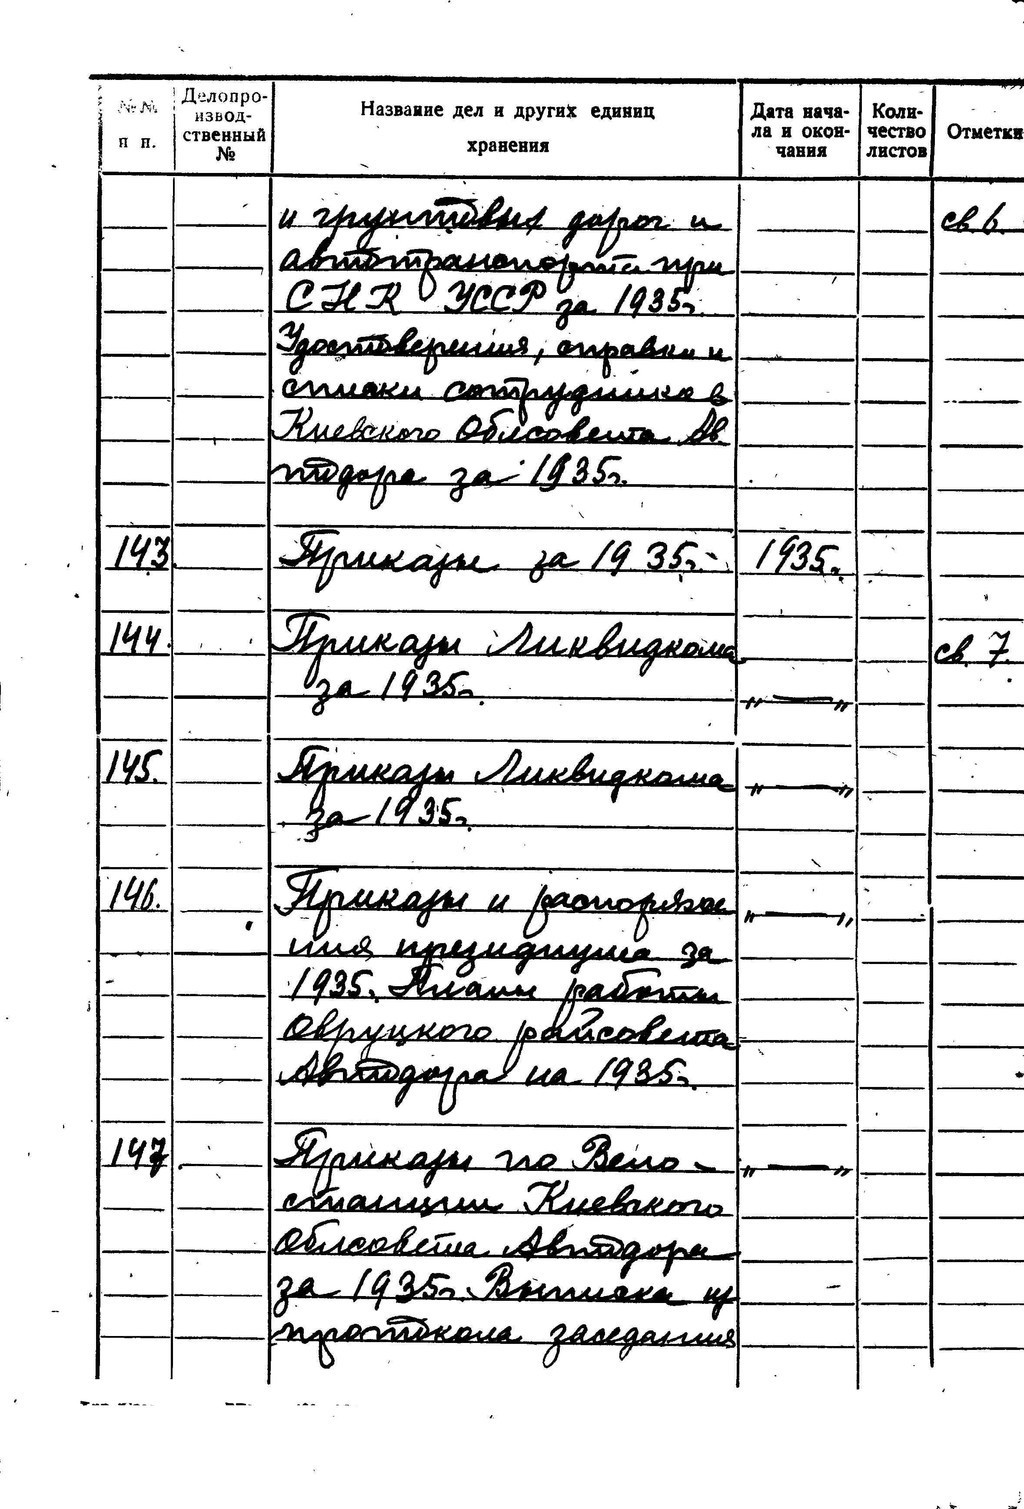 №№ п п.
Делопро-
извод-
ственный
№
Название дел и других единиц
хранения
Дата нача-
ла и окон-
чания
Коли-
чество
листов
Отметки
и грунтовых дорог и св 6.
автотранспорта при
СНК УССР за 1935г.
Удостоверения, справки и
списки сотрудников
Киевского Облсовета Ав
тодора за 1935г.
143. Приказы за 1935г. 1935г.
144. Приказы Ликвидкома св. 7.
за 1935г. „ — „
145. Приказы Ликвидкома „ — „
за 1935г.
146. Приказы и распоряже „ — „
ния президиума за
1935. Планы работы
Овруцкого райсовета
Автодора на 1935г.
147. Приказы по Вело- „ — „
станции Киевского
Облсовета Автодора
за 1935г. Выписка из
протокола заседания